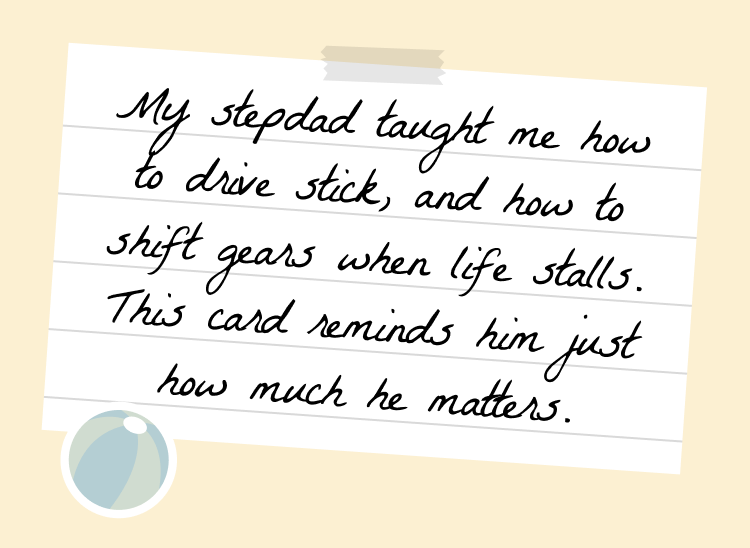 My stepdad taught me how
to drive stick, and how to
shift gears when life stalls.
This card reminds him just
how much he matters.